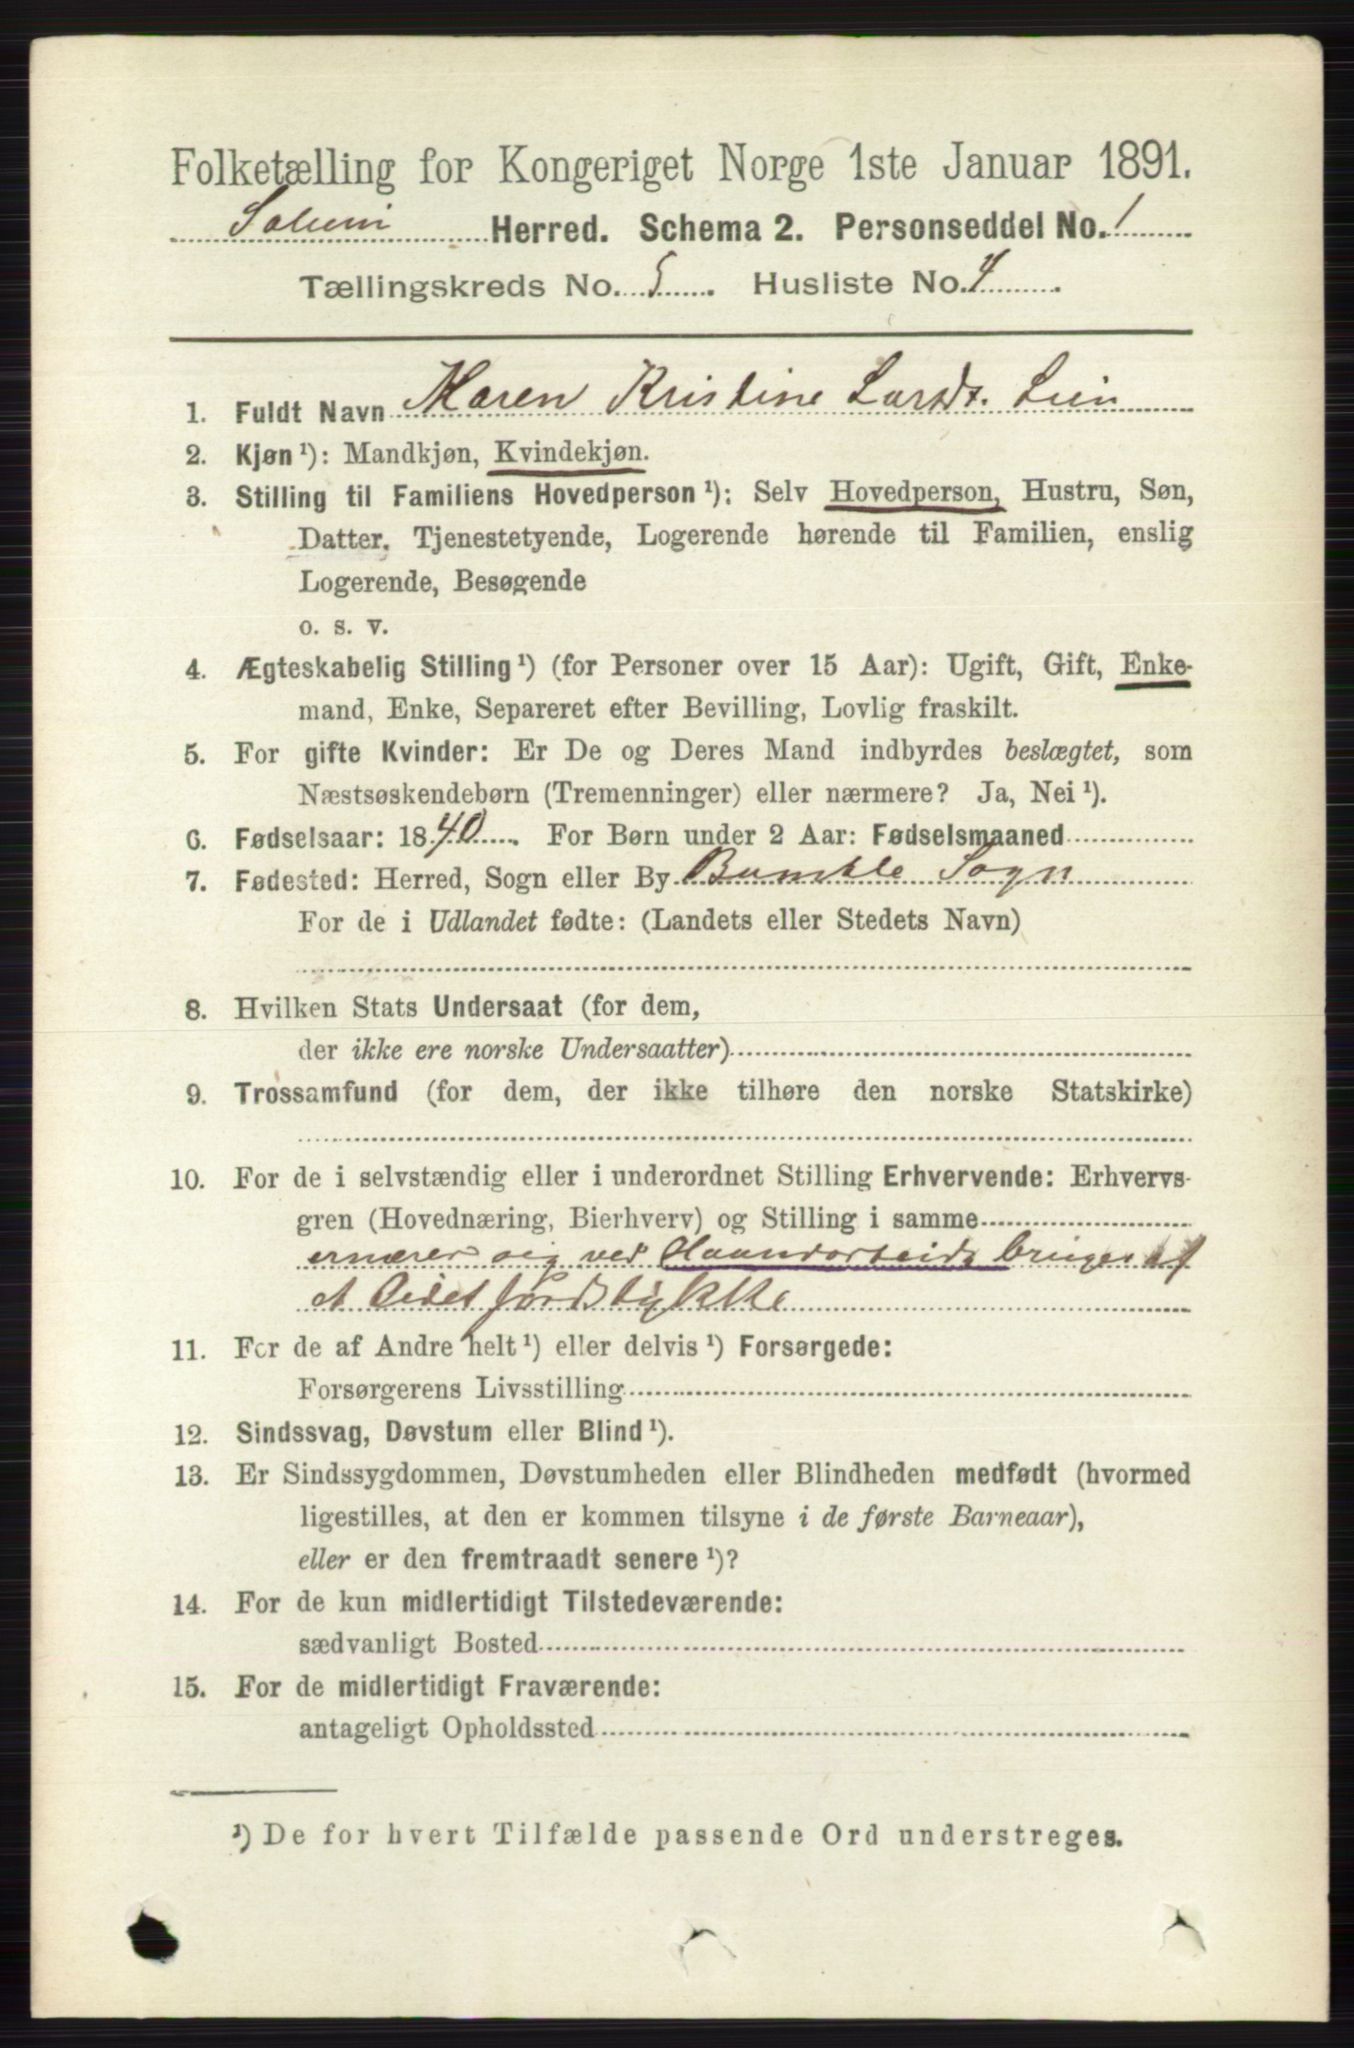 Folketælling for Kongeriget Norge 1ste Januar 1891.
Solum Herred. Schema 2. Personseddel No. 1
Tællingskreds No. 5. Husliste No. 4
1. Fuldt Navn Maren Kristine Larsdt. Lien
2. Kjøn ¹): Mandkjøn, Kvindekjøn.
3. Stilling til Familiens Hovedperson ¹): Selv Hovedperson, Hustru, Søn,
Datter, Tjenestetyende, Logerende hørende til Familien, enslig
Logerende, Besøgende
o. s. v.
4. Ægteskabelig Stilling ¹) (for Personer over 15 Aar): Ugift, Gift, Enke-
mand, Enke, Separeret efter Bevilling, Lovlig fraskilt.
5. For gifte Kvinder: Er De og Deres Mand indbyrdes beslægtet, som
Næstsøskendebørn (Tremenninger) eller nærmere? Ja, Nei ¹).
6. Fødselsaar: 1840. For Børn under 2 Aar: Fødselsmaaned
7. Fødested: Herred, Sogn eller By Bamble Sogn
For de i Udlandet fødte: (Landets eller Stedets Navn)
8. Hvilken Stats Undersaat (for dem,
der ikke ere norske Undersaatter)
9. Trossamfund (for dem, der ikke tilhøre den norske Statskirke)
10. For de i selvstændig eller i underordnet Stilling Erhvervende: Erhvervs-
gren (Hovednæring, Bierhverv) og Stilling i samme
ernærer sig ved Haandarbeide bruger
et Lidet Jordstykke
11. For de af Andre helt ¹) eller delvis ¹) Forsørgede:
Forsørgerens Livsstilling
12. Sindssvag, Døvstum eller Blind ¹).
13. Er Sindssygdommen, Døvstumheden eller Blindheden medfødt (hvormed
ligestilles, at den er kommen tilsyne i de første Barneaar),
eller er den fremtraadt senere ¹)?
14. For de kun midlertidigt Tilstedeværende:
sædvanligt Bosted
15. For de midlertidigt Fraværende:
antageligt Opholdssted
¹) De for hvert Tilfælde passende Ord understreges.